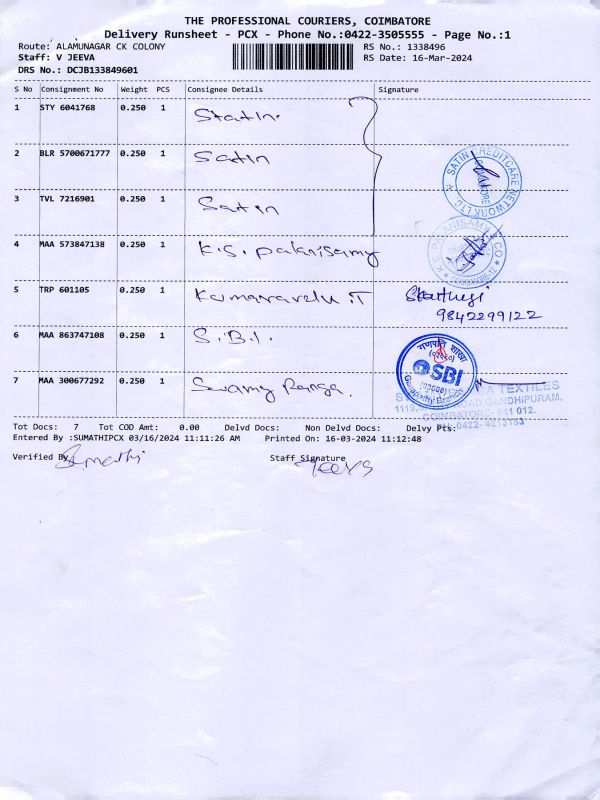 THE PROFESSIONAL COURIERS, COIMBATORE
Delivery Runsheet - PCX - Phone No.:0422-3505555 - Page No.:1
Route: ALAMUNAGAR CK COLONY RS No.: 1338496
Staff: V JEEVA RS Date: 16-Mar-2024
DRS No.: DCJB133849601
S No Consignment No Weight PCS Consignee Details Signature
1 STY 6041768 0.250 1 Statin.
2 BLR 5700671777 0.250 1 Satin
SATIN CREDITCARE NETWORK LTD.
3 TVL 7216901 0.250 1 Satin
4 MAA 573847138 0.250 1 K.S. palanisamy
K.S. PALANISAMY & CO
5 TRP 601105 0.250 1 Kumaravelu .T
9842299122
6 MAA 863747108 0.250 1 S.B.I.
गणपति शाखा
SBI
Ganapathy Branch
7 MAA 300677292 0.250 1 Swamy Ranga.
TEXTILES
ROAD, GANDHIPURAM,
COIMBATORE - 641 012.
PH.0422- 4213763
Tot Docs: 7 Tot COD Amt: 0.00 Delvd Docs: Non Delvd Docs: Delvy Pts:
Entered By :SUMATHIPCX 03/16/2024 11:11:26 AM Printed On: 16-03-2024 11:12:48
Verified By Sumathi Staff Signature